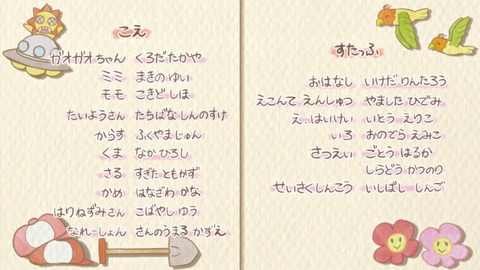 こえ
ガオガオちゃん くろだ たかや
ミミ まきの ゆい
モモ こきど しほ
たいようさん たちばな しんのすけ
からす ふくやま じゅん
くま なか ひろし
さる すぎた ともかず
かめ はなざわ かな
はりねずみさん こばやし ゆう
なれーしょん さんのうまる かずえ
すたっふ
おはなし いけだ りんたろう
えこんて えんしゅつ やました ひでみ
え、はいけい いとう えりこ
いろ おのでら えみこ
さつえい ごとう はるか
しらどう かつのり
せいさくしんこう いしばし しんご